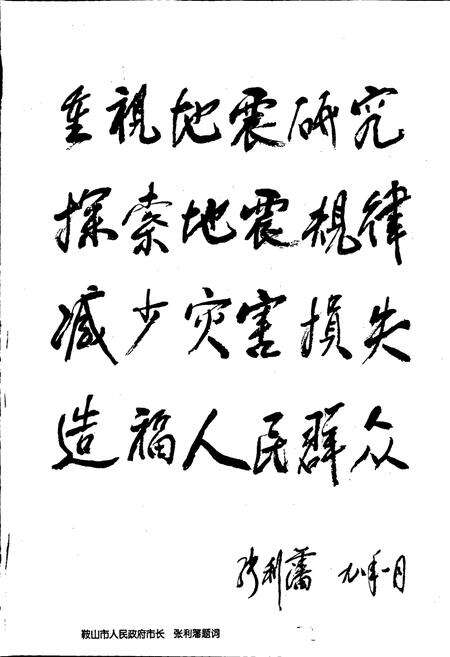 重視地震研究
探索地震規律
减少灾害損失
造福人民群众
张利藩 九八年一月
鞍山市人民政府市长 张利藩题词